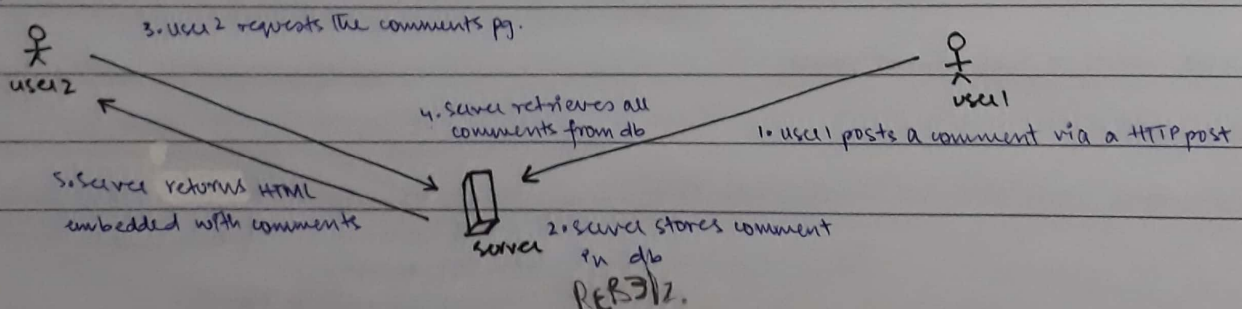 3. user 2 requests the comments pg.
user 2
user 1
4. server retrieves all
comments from db
1. user 1 posts a comment via a HTTP post
5. server returns HTML
embedded with comments
server
2. server stores comment
in db